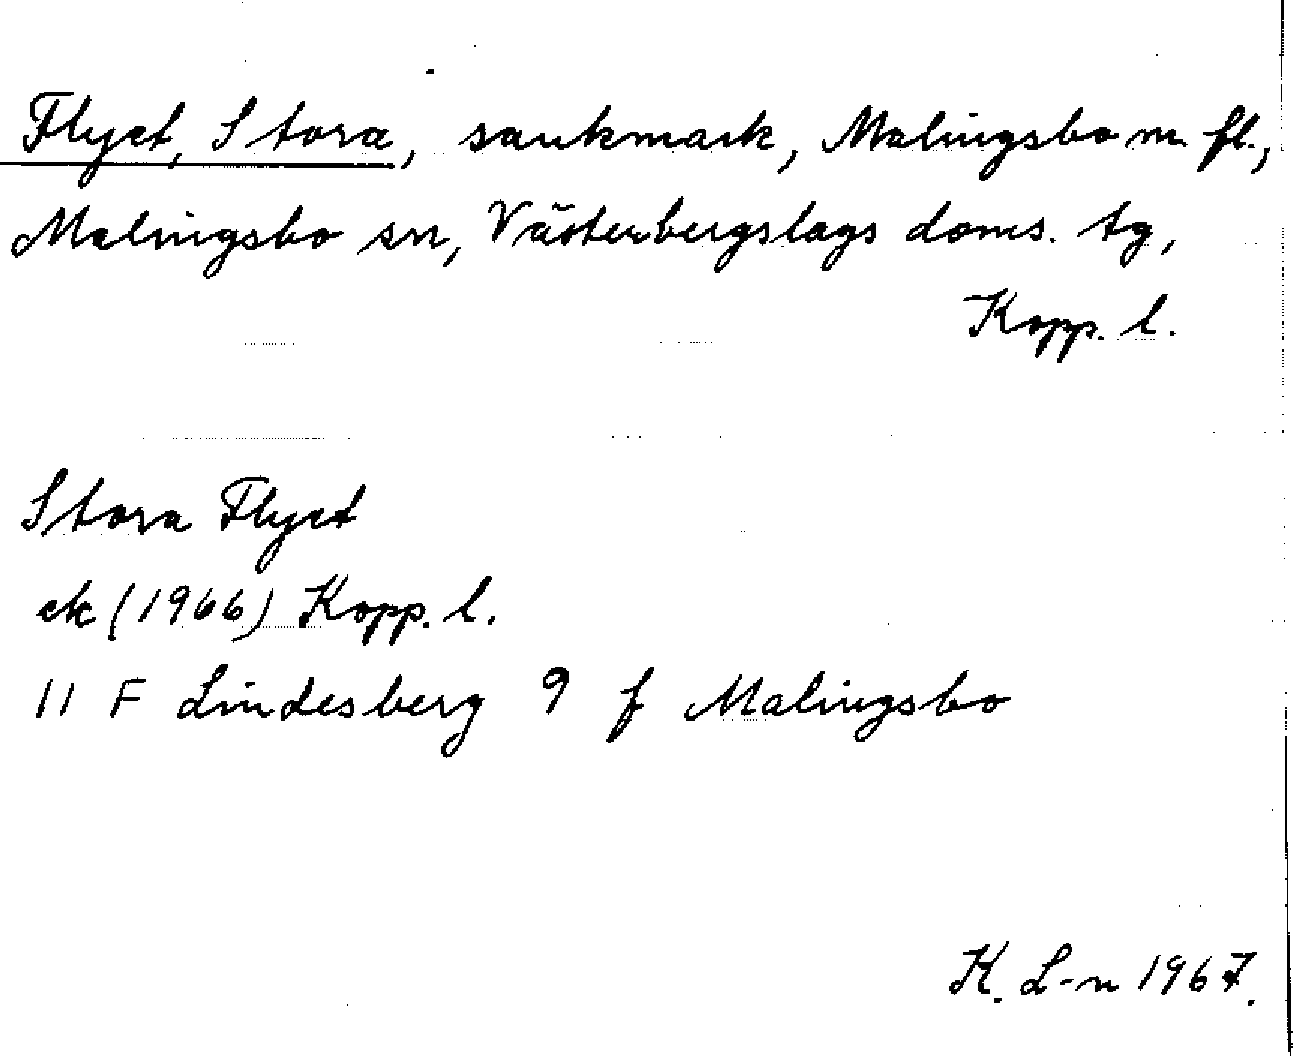 Flyet, Stora, sankmark, Malingsbo m. fl.,
Malingsbo sn, Västerbergslags doms. tg,
Kopp. l.
Stora Flyet
ek (1966) Kopp. l.
11 F Lindesberg 9 f Malingsbo
K. L-n 1967.